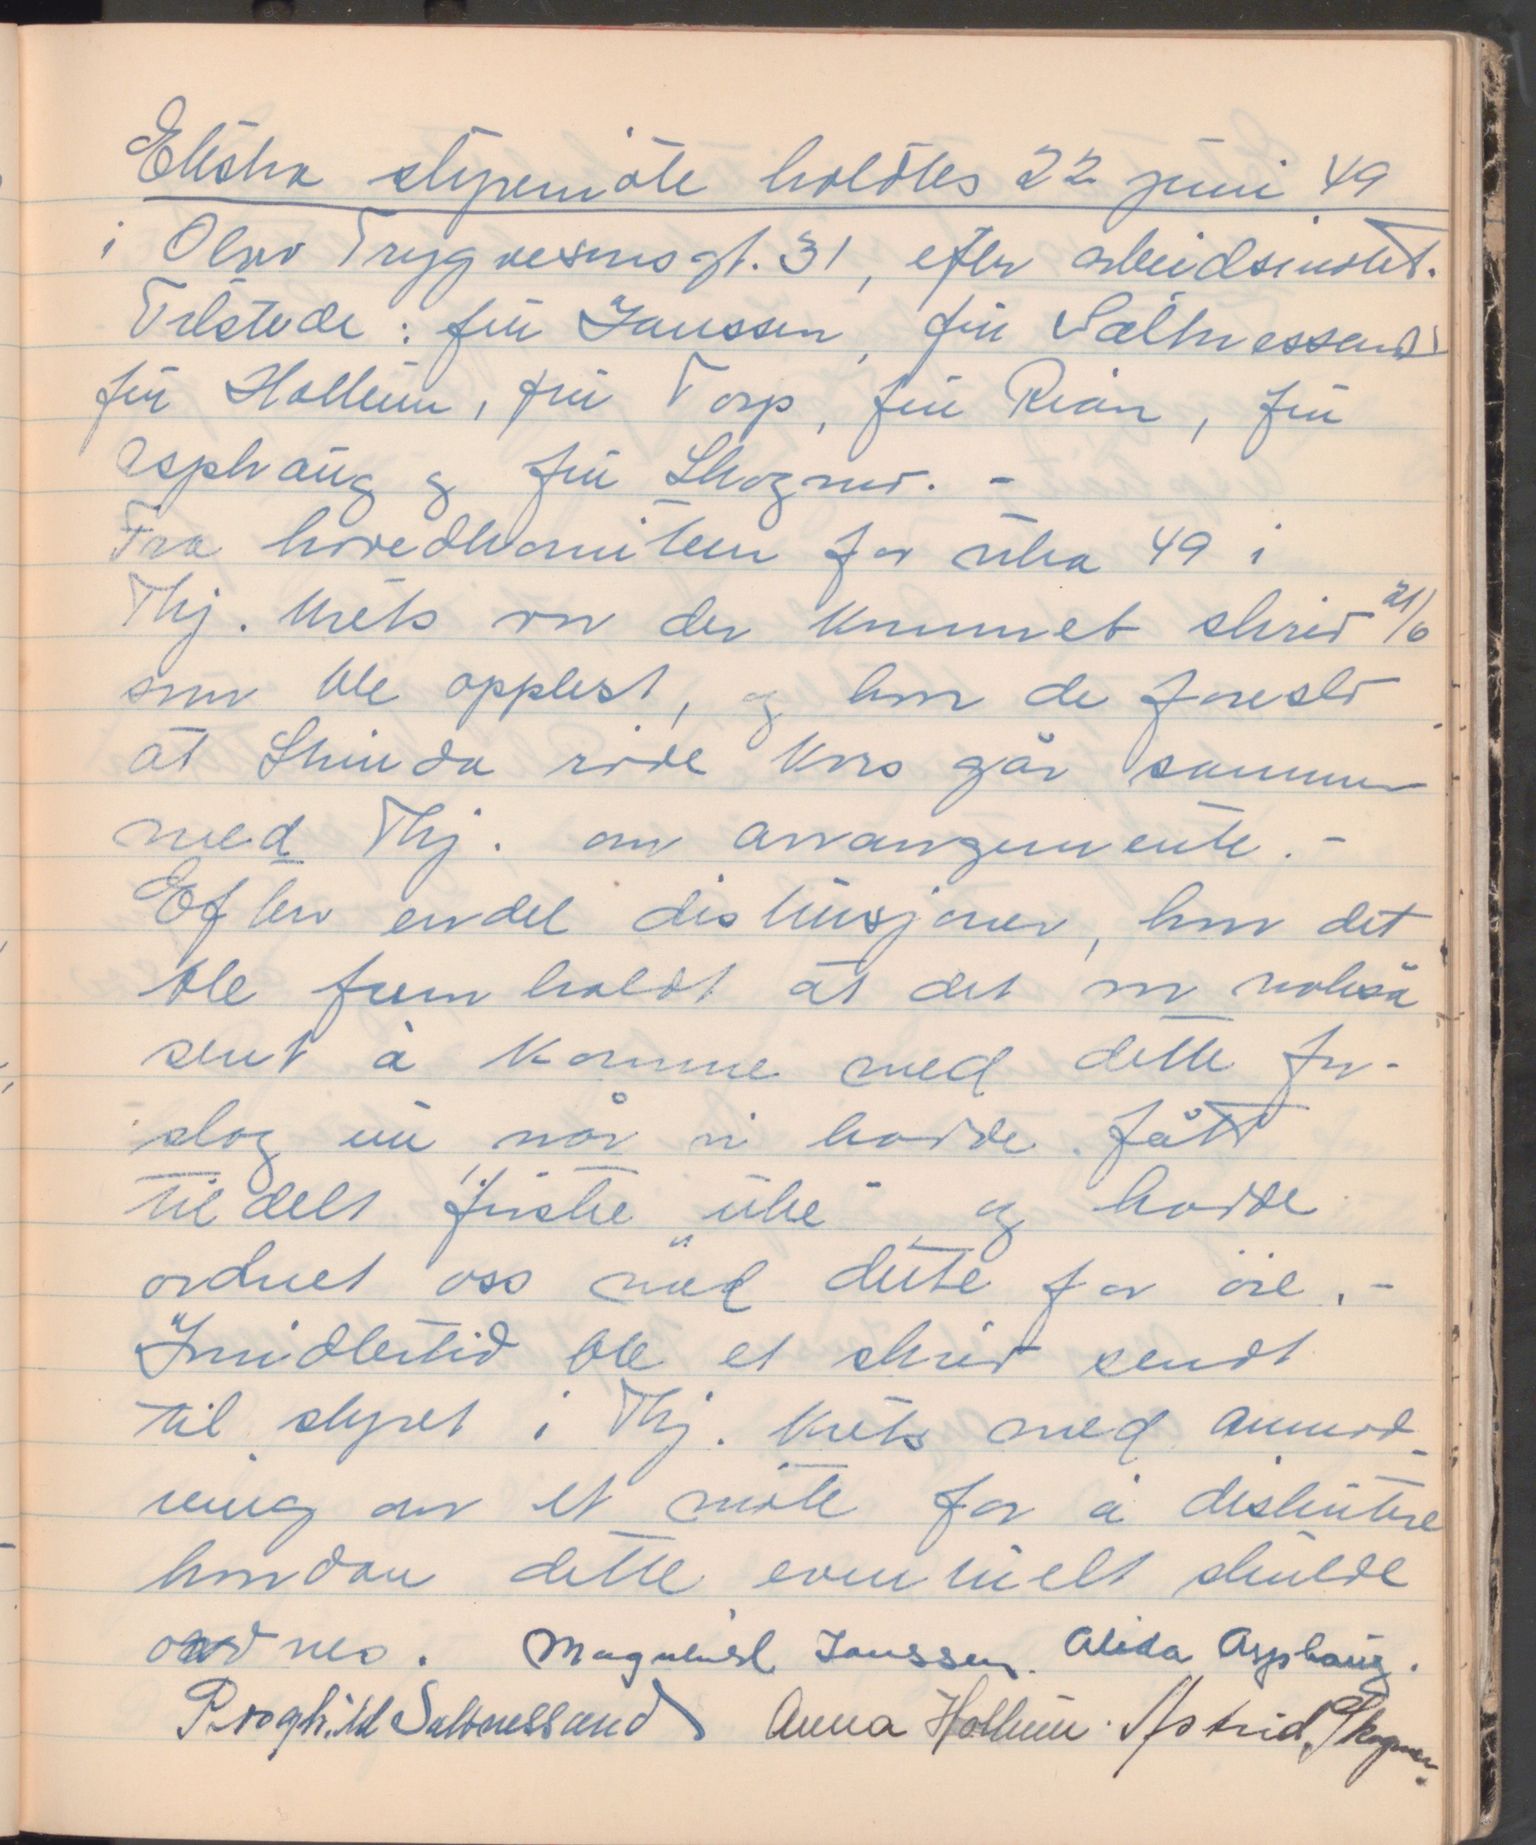 Ekstra styremöte holdtes 22 juni 49
i Olav Trygvesonsgt. 31, efter arbeidsmötet.
Tilstede: fru Janssen, fru Saltnessand
fru Hollum, fru Torp, fru Rian, fru
Asphaug og fru Skogmo. -
Fra hovedkomiteen for uka 49 i
Thj. krets var der kommet skriv 21/6
som ble opplest, og hvor de foreslo
at Strinda röde kors går sammen
med Thj. om arrangemente. -
Efter endel diskusjoner, hvor det
ble fremholdt at det var nokså
sent å komme med dette for-
slag nu når vi hadde fått
tildelt "friske uke" og hadde
ordnet oss med dette for öie. -
Imidlertid ble et skriv sendt
til styret i Thj. krets med anmod-
ning om et möte for å diskutere
hvordan dette eventuelt skulde
ordnes. Magnhild Janssen. Alida Asphaug.
Ragnhild Saltnessand Anna Hollum. Astrid Skogmo.